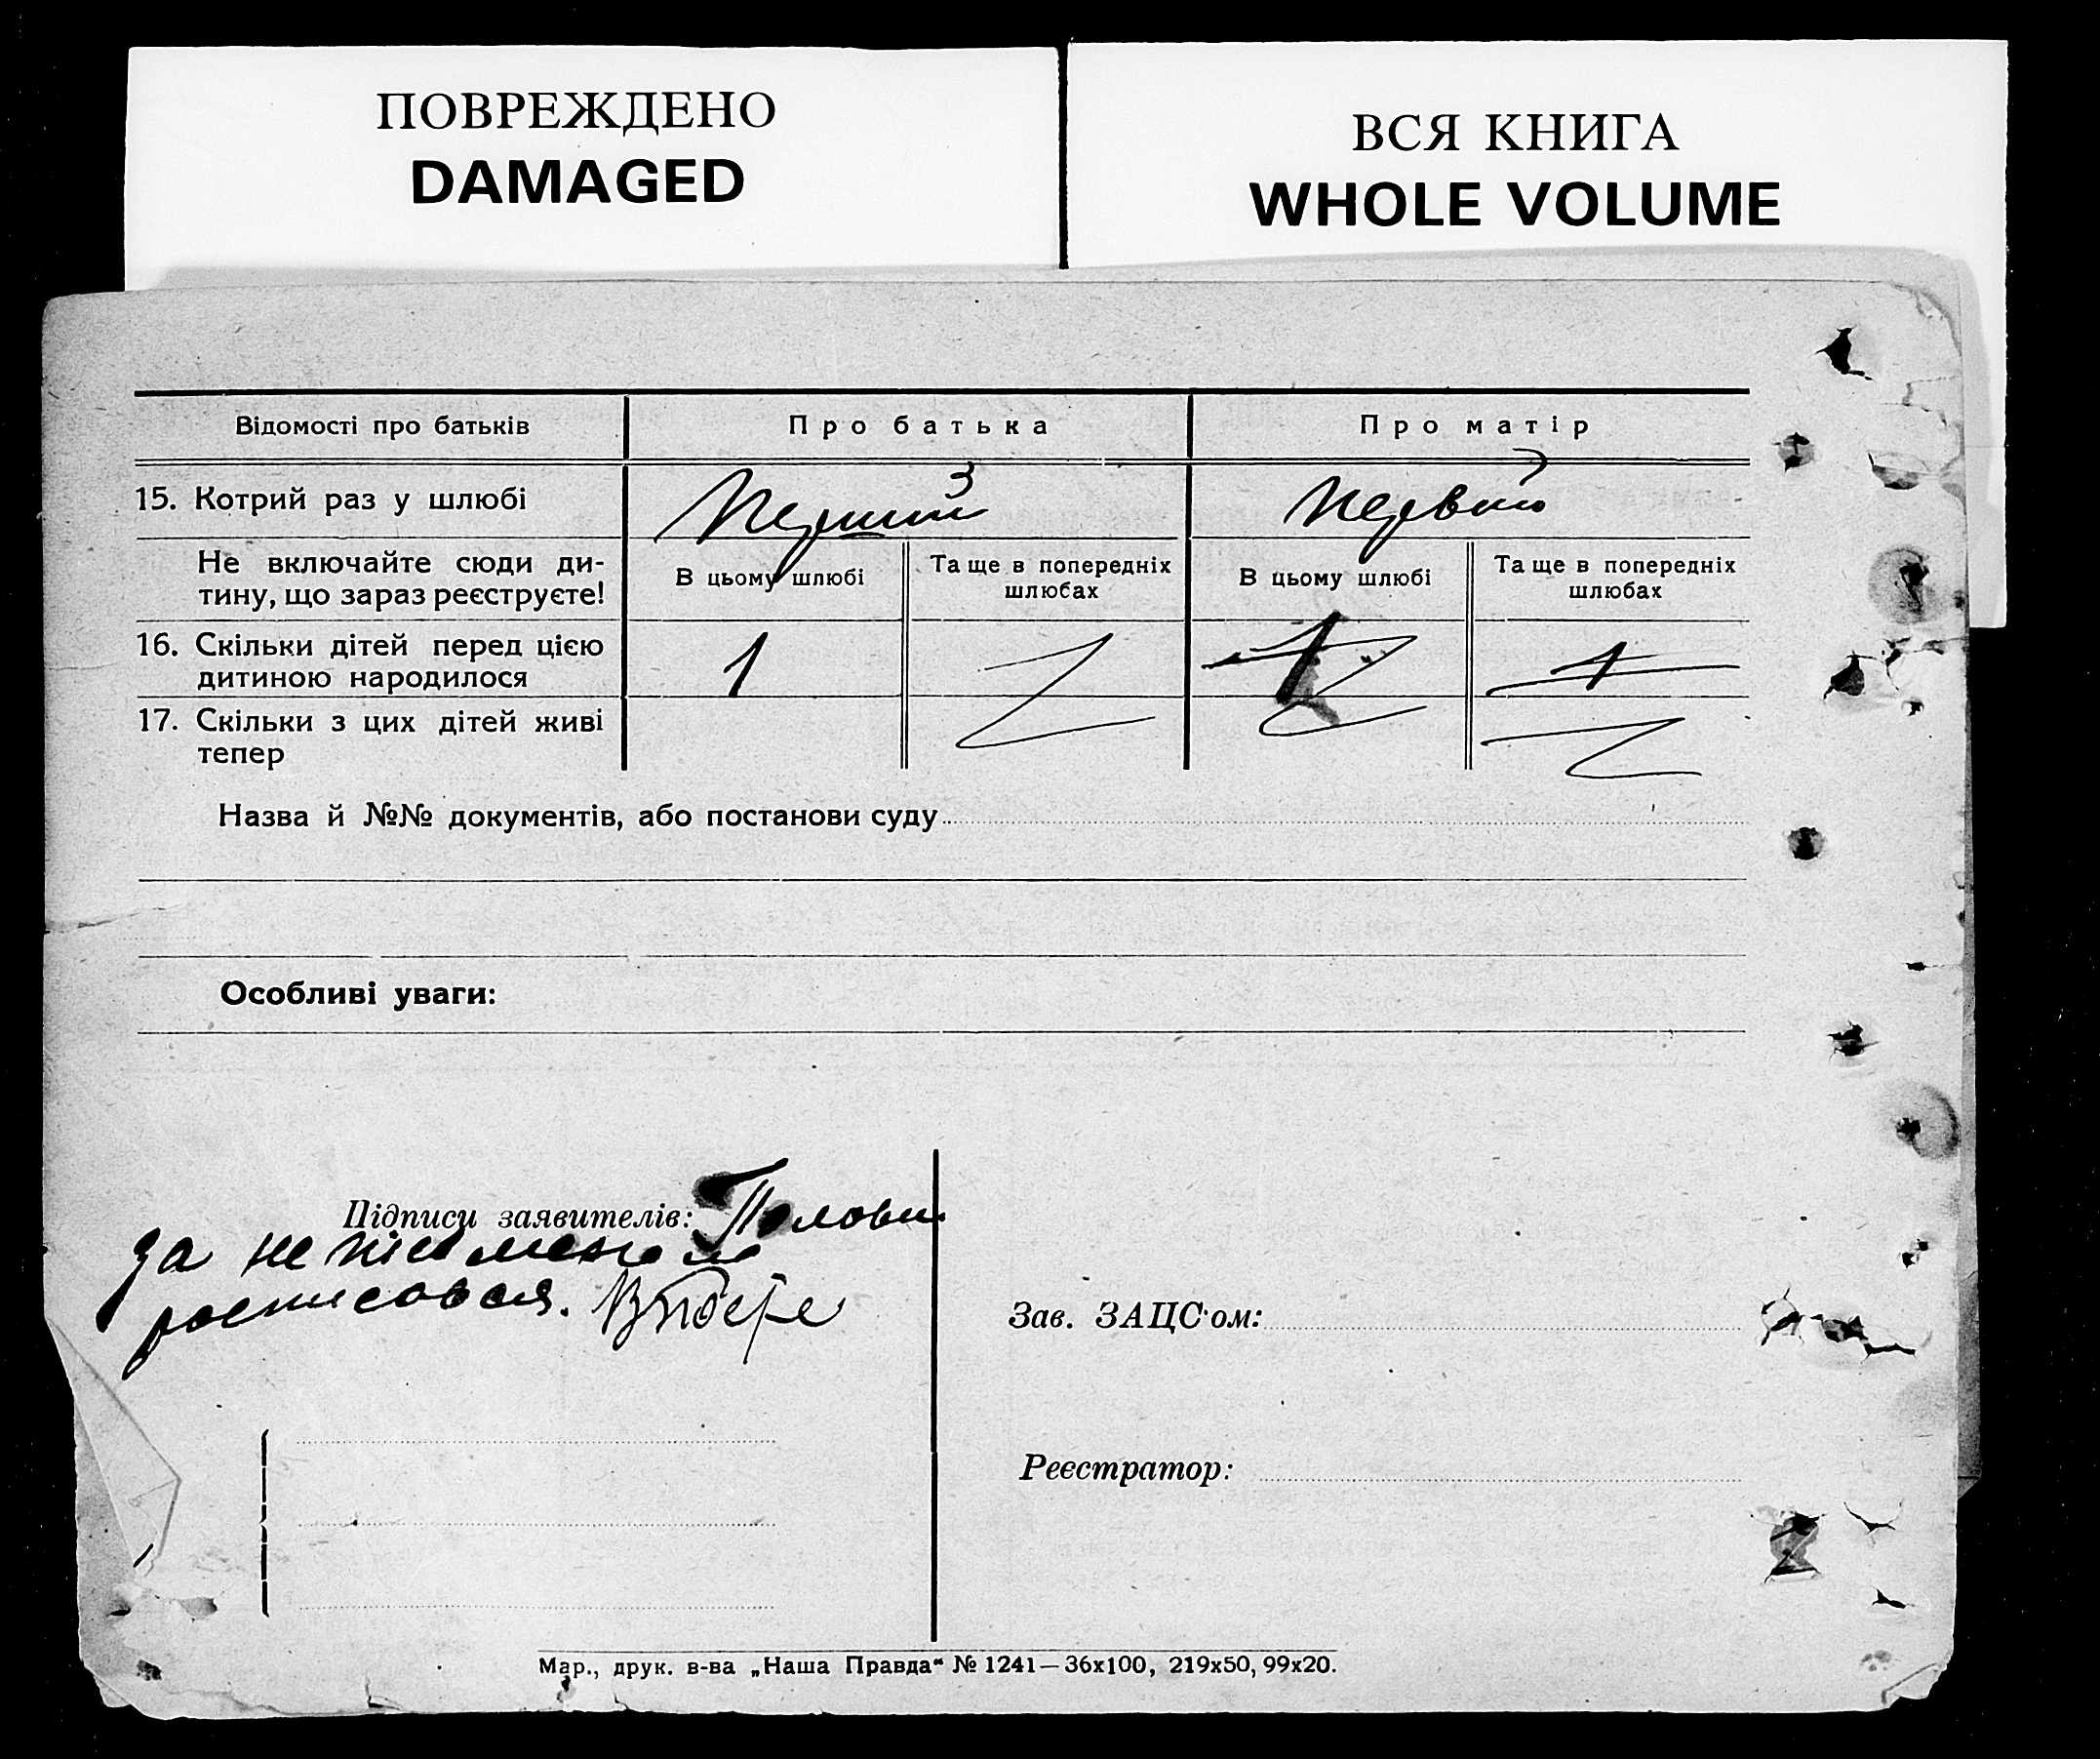 ПОВРЕЖДЕНО
DAMAGED
ВСЯ КНИГА
WHOLE VOLUME
Відомості про батьків
Про батька
Про матір
15. Котрий раз у шлюбі
Перший
Первий
Не включайте сюди ди-
тину, що зараз реєструєте!
В цьому шлюбі
Та ще в попередніх
шлюбах
В цьому шлюбі
Та ще в попередніх
шлюбах
16. Скільки дітей перед цією
дитиною народилося
1
1
1
17. Скільки з цих дітей живі
тепер
Назва й №№ документів, або постанови суду
Особливі уваги:
Підписи заявителів:
за
росписовся.
Зав. ЗАЦС'ом:
Реєстратор:
Мар., друк. в-ва „Наша Правда“ № 1241—36х100, 219х50, 99х20.